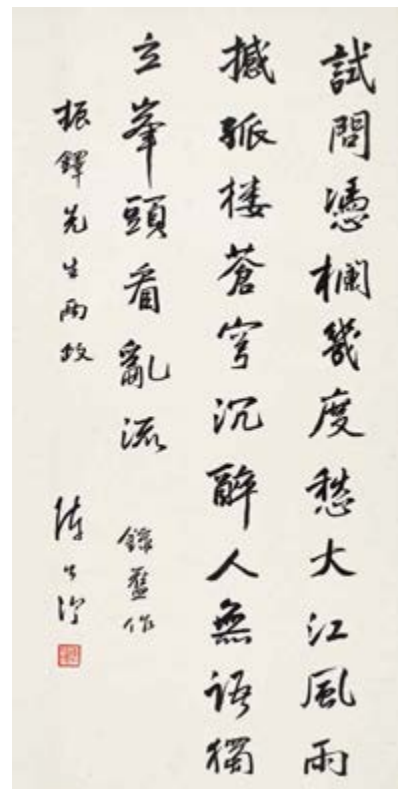 試問憑欄幾度愁大江風雨
撼孤楼蒼穹沉醉人無語獨
立峯頭看亂流 錄舊作
振鐸先生兩政
陳公博